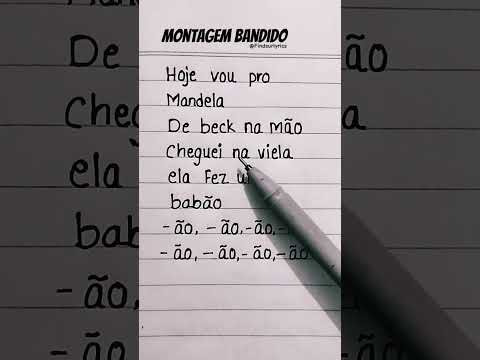 MONTAGEM BANDIDO
@Findsurlyrics
Hoje vou pro
Mandela
De beck na mão
Cheguei na viela
ela Fez
babão
-ão, -ão, -ão,
-ão, -ão, -ão, -ão